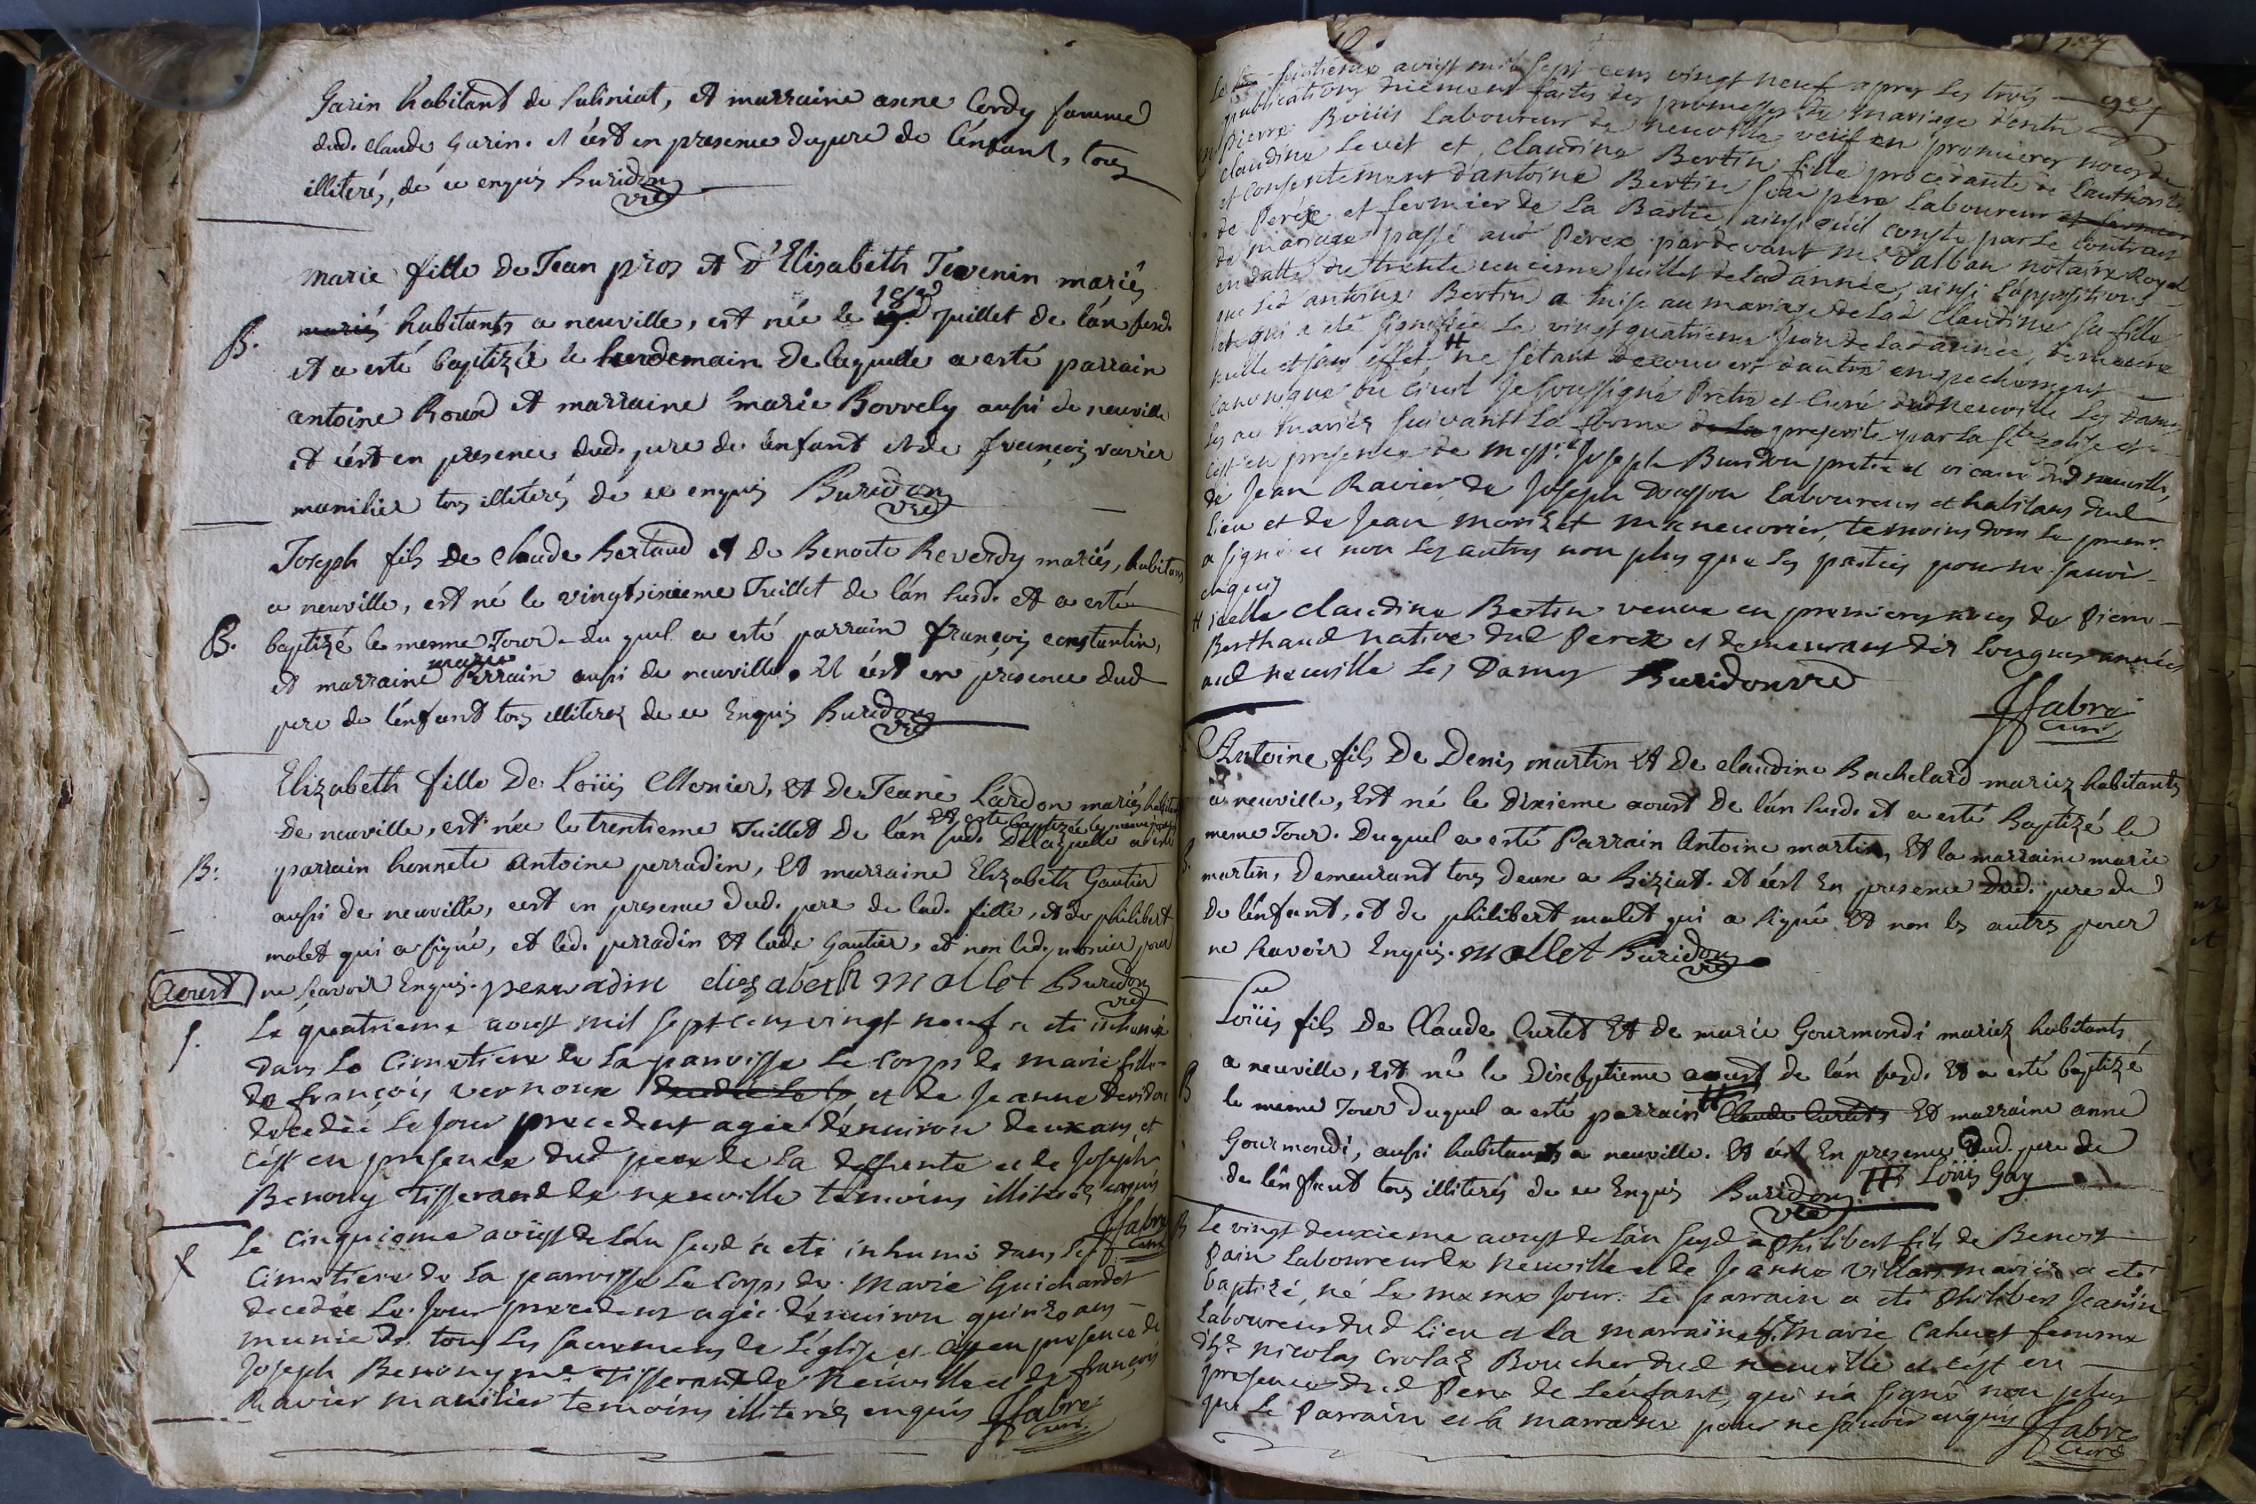 Garin habitant de Suliniat, et marraine anne Cordy femme
dud. claude Garin. et c'est en presence du pere de l'enfant, tous
illiterés, de ce enquis Buridon
vic
marie fille de Jean pros et d'Elisabeth Tevenin mariés
18e
mariés habitants a neuville, est née le juillet de l'an susd.
B.
et a esté baptizée le lendemain de laquelle a esté parrain
antoine Roux et marraine marie Bovvely aussi de neuville
et c'est en presence dud. pere de l'enfant et de françois varrier
manilier tous illiterés de ce enquis Buridon
vic
Joseph fils de Claude Bertaud et de Benoite Reverdy mariés, habitans
a neuville, est né le vingtsixieme Juillet de l'an susd. et a esté
B.
baptizé le meme Jour. du quel a esté parrain françois constantin,
et marraine marie Perrain aussi de neuville. Et c'est en presence dud
pere de l'enfant tous illiterez de ce Enquis Buridon
vic
Elizabeth fille De Loüis Monier, et de Jeane Lardon mariés habitants
de neuville, est née le trentieme Juillet de l'an susd. Delaquelle a esté
et esté baptizée le meme jour
B:
parrain honnete Antoine perradin, et marraine Elizabeth Gautier
aussi de neuville, c'est en presence dud. pere de lad. fille, et de philibert
malet qui a signé, et led. perradin et lade Gautier, et non led. monier pour
aoust
ne scavoir Enquis. perradin elizabeth mallet Buridon
vic
S.
Le quatrieme aoust mil sept cens vingt neuf a eté inhumée
dans le Cimetiere de la parroisse le Corps de marie fille
de françois vernoux et de Jeanne
decedée le Jour precedent agée d'environ deux ans, et
c'est en presence dud pere de la deffunte et de Joseph
Benony Tisserand de neuville temoins illiterés enquis
JFabre
curé
Le Cinquieme aoust de l'an susd a eté inhumé dans le
Cimetiere de la parroisse le Corps de Marie Guichardet
decedée le Jour precedent agée d'environ quinze ans
munie de tous les sacremens de l'église et c'est en presence de
Joseph Benony me Tisserand de Neuville et de françois
Ravier manilier temoins illiterés enquis JFabre
curé
Le huitieme aoust mil sept cens vingt neuf apres les trois
publications düement faites des promesses de mariage d'entre
Pierre Boüis Laboureur de neuville veuf en premieres noces de
Claudine Levet et Claudine Bertin fille procedante de l'authorité
et Consentement d'antoine Bertin son pere Laboureur et fermier
de Perex et fermier de La Bastie, ainsi qu'il conste par le Contrat
de mariage passé aud Perex pardevant me Dalban notaire Royal
en datte du trente unieme juillet de lad année, ainsi l'opposition
que led antoine Bertin a faite au mariage de lad Claudine sa fille
qui a eté signifiée le vingt quatrieme juin de lad année, demeure
nulle et sans effet # ne s'etant decouvert d'autre empechement
Canonique ou Civil Je soussigné Pretre et Curé dud neuville les Dames
les ay mariés suivant la forme de la prescrite par la Ste eglise et
c'est en presence de messire Joseph Buridon pretre et vicaire dud neuville,
de Jean Ravier de Joseph Laboureurs et habitans dud
Lieu et de Jean manewvrier, temoins dont le premier
a signé et non les autres non plus que les parties pour ne scavoir
enquis
# icelle Claudine Bertin veuve en premieres noces de Pierre
Berthaud native dud Perex et demeurant des longues années
aud neuville les Dames Buridon vic
JFabre
curé
Antoine fils De Denis martin et De claudine Bachelard mariez habitants
a neuville, Est né le dixieme aoust de l'an susd. et a esté Baptizé le
meme Jour. Duquel a esté Parrain Antoine martin, et la marraine marie
martin, Demeurant tous deux a Biziat. et c'est En presence dud. pere de
de l'enfant, et de philibert malet qui a signé et non les autres pour
ne scavoir Enquis. mallet Buridon
vic
Loüis fils De Claude Curtet et de marie Gourmondi mariez habitants
a neuville, est né le Dixseptieme aoust de l'an susd. et a esté baptizé
B
le meme Jour duquel a esté parrain # Claude Curtet, et marraine anne
Gourmondi, aussi habitants a neuville. et c'est En presence dud. pere de
de l'enfant tous illiterés de ce Enquis Buridon # Loüis Gay
vic
B
Le vingt deuxieme aoust de l'an susd Philibert fils de Benoit
Pain Laboureur de Neuville et de Jeanne Villars mariés a eté
baptizé, né le meme Jour. Le parrain a eté Philibert Jeanin
Laboureur dud Lieu et la marraine Marie Cahuet femme
d'h. nicolas Crolaz Boucher dud neuville et c'est en
presence dud Pere de l'enfant, qui n'a signé non plus
que le Parrain et la marraine pour ne scavoir enquis JFabre
curé